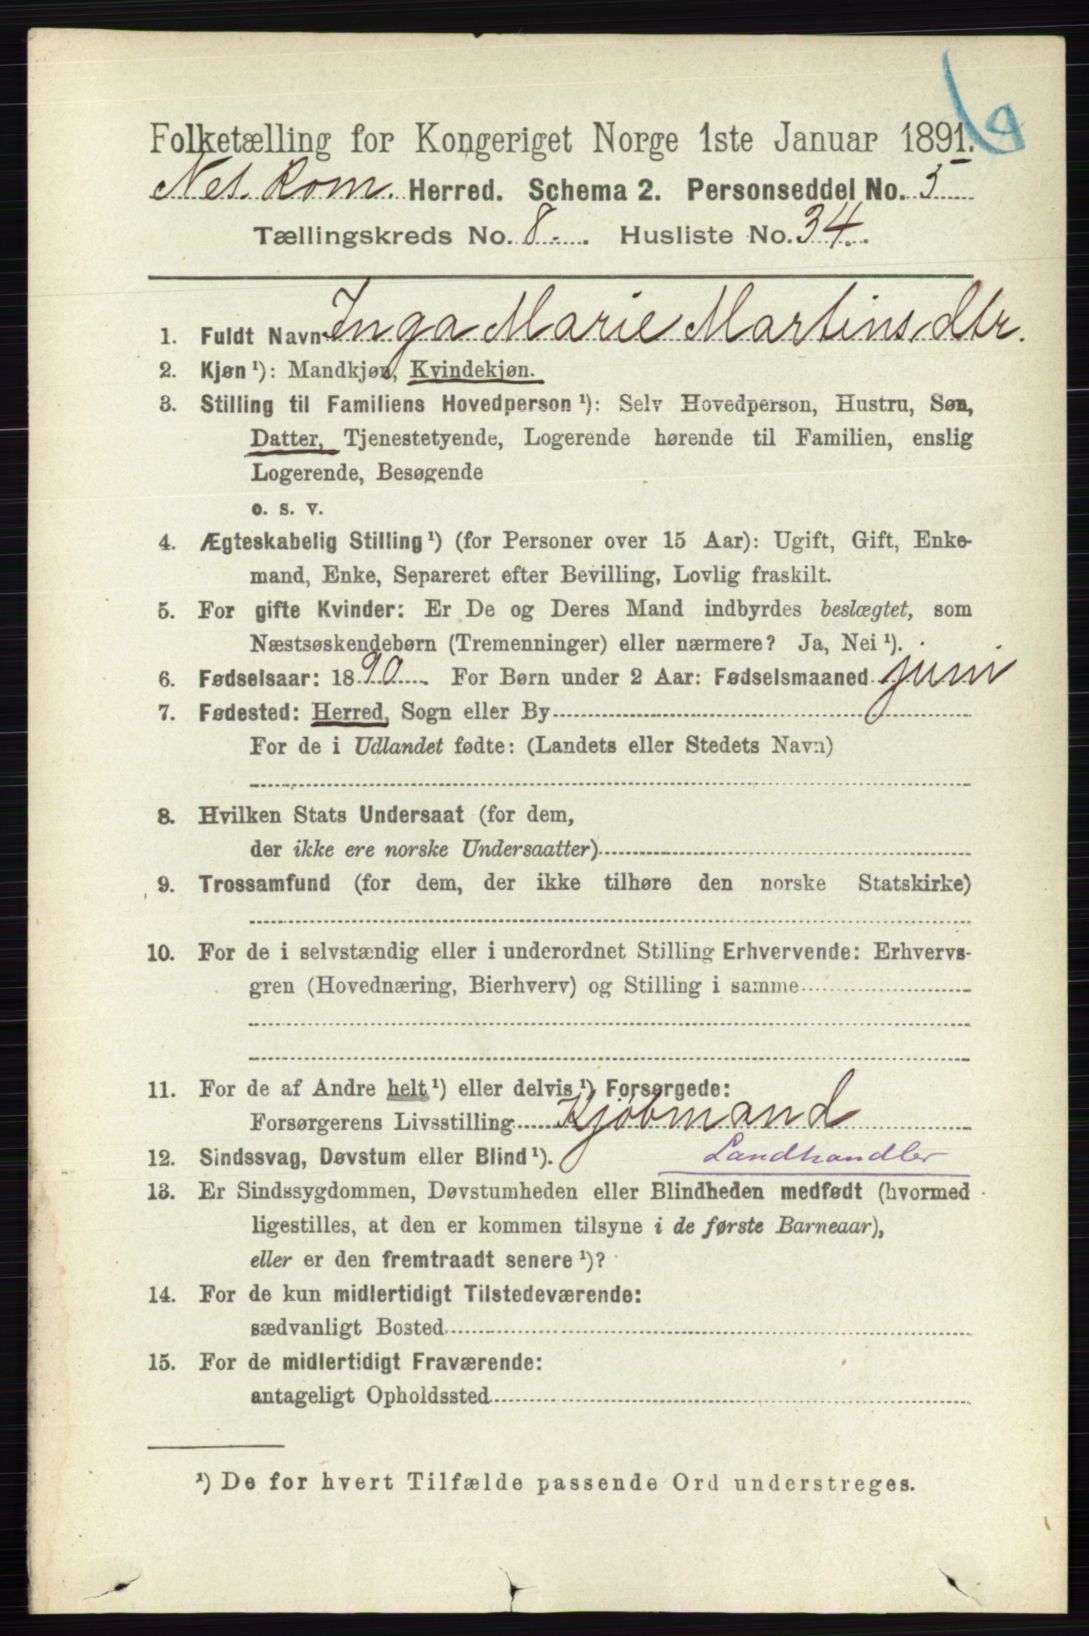 Folketælling for Kongeriget Norge 1ste Januar 1891.
Nes. Rom. Herred. Schema 2. Personseddel No. 5
Tællingskreds No. 8. Husliste No. 34.
1. Fuldt Navn Inga Marie Martins. dtr.
2. Kjøn ¹): Mandkjøn, Kvindekjøn.
3. Stilling til Familiens Hovedperson ¹): Selv Hovedperson, Hustru, Søn,
Datter, Tjenestetyende, Logerende hørende til Familien, enslig
Logerende, Besøgende
o. s. v.
4. Ægteskabelig Stilling ¹) (for Personer over 15 Aar): Ugift, Gift, Enke-
mand, Enke, Separeret efter Bevilling, Lovlig fraskilt.
5. For gifte Kvinder: Er De og Deres Mand indbyrdes beslægtet, som
Næstsøskendebørn (Tremenninger) eller nærmere? Ja, Nei ¹).
6. Fødselsaar: 1890. For Børn under 2 Aar: Fødselsmaaned juni
7. Fødested: Herred, Sogn eller By
For de i Udlandet fødte: (Landets eller Stedets Navn)
8. Hvilken Stats Undersaat (for dem,
der ikke ere norske Undersaatter)
9. Trossamfund (for dem, der ikke tilhøre den norske Statskirke)
10. For de i selvstændig eller i underordnet Stilling Erhvervende: Erhvervs-
gren (Hovednæring, Bierhverv) og Stilling i samme
11. For de af Andre helt ¹) eller delvis ¹) Forsørgede:
Forsørgerens Livsstilling Kjøbmand
12. Sindssvag, Døvstum eller Blind ¹). Landhandler
13. Er Sindssygdommen, Døvstumheden eller Blindheden medfødt (hvormed
ligestilles, at den er kommen tilsyne i de første Barneaar),
eller er den fremtraadt senere ¹)?
14. For de kun midlertidigt Tilstedeværende:
sædvanligt Bosted
15. For de midlertidigt Fraværende:
antageligt Opholdssted
¹) De for hvert Tilfælde passende Ord understreges.